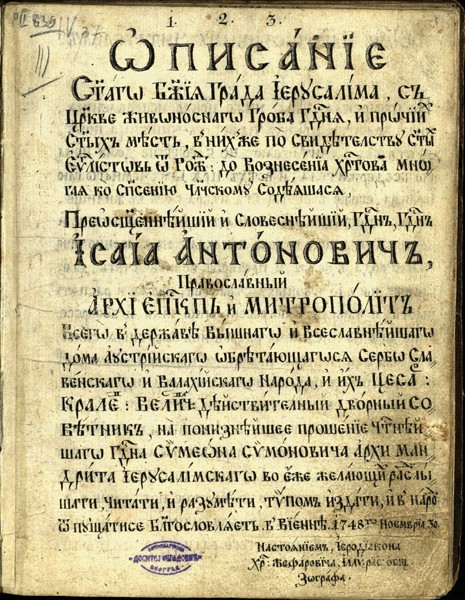 1. 2. 3.
Ѡписа́нїе
Ст҃а́гѡ Бж҃їѧ Гра́да Їерꙋсалі́ма, съ
Цр҃кве живоно́снагѡ Гро́ба Гдⷭ҇нѧ, и҆ про́чїй
Ст҃ы́хъ мѣ́стъ, в ни́хже по̀ Свидѣ́телствꙋ Ст҃ы
Єѵⷢ҇лі́стѡвъ ѿ Рож: до Вознесе́нїѧ Хрⷭ҇то́ва мно
гаѧ ко Сп҃се́нїю Чл҃ческомꙋ Содѣ́ѧшасѧ,
Преѡсщ҃е́ннѣйшїй и҆ Слове́снѣйшїй, Гдⷭ҇нъ, Гдⷭ҇нъ
І҆са́їа А҆нто́новичъ,
Правосла́вный
А҆рхїеп҃кпъ и҆ Митрополі́тъ
Всегѡ̀ в держа́вѣ Вышнѧгѡ и҆ Всесла́внѣйшагѡ
дома Аꙋстрі́йскагѡ ѡбрѣта́ющагѡсѧ Сербѡ Сла
ве́нскагѡ и҆ Валахі́йскагѡ Наро́да, и҆ и҆́хъ Цеса:
Крале: Вели́ч: Дѣйстви́телный дво́рный Со
вѣ́тникъ, на̀ понизнѣ́йшее проше́нїе Чтⷭ҇нѣй
шагѡ Гдⷭ҇на Сѷмеѡ́на Сѷмо́новича А҆рхи ман
дри́та Їерꙋсалі́мскагѡ во є҆́же жела́ющїй расⷧ҇лы
шати, чита́ти, и҆ разꙋмѣ́ти, тѵ́помъ и҆зда́ти, и҆ в наро
ѿпꙋща́тисе Блгⷭ҇ословлѧ́етъ. в Вїе́ннѣ. 1748 гѡ Ное́мврїа 30
Настоѧ́нїемъ, Їеродїакона
Хр: Жефаровича, Їллѵ́рїко расⷧ҇. общ.
Зѡграфа.
ДОСИТЕЈ ОБРАДОВИЋ
БЕОГРАД